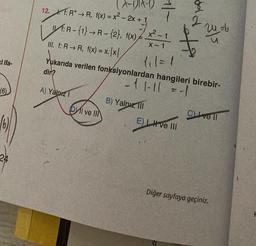 12. I. f: R⁺ → R, f(x) = x² - 2x + 1
II. f: R - {1} → R - {2}, f(x) = x² - 1 / x - 1
III. f: R → R, f(x) = x.|x|
1.|1| = 1
Yukarıda verilen fonksiyonlardan hangileri birebir-
dir?
-1 |-1| = -1
A) Yalnız I
B) Yalnız III
C) I ve II
D) II ve III
E) I, II ve III
Diğer sayfaya geçiniz.
24